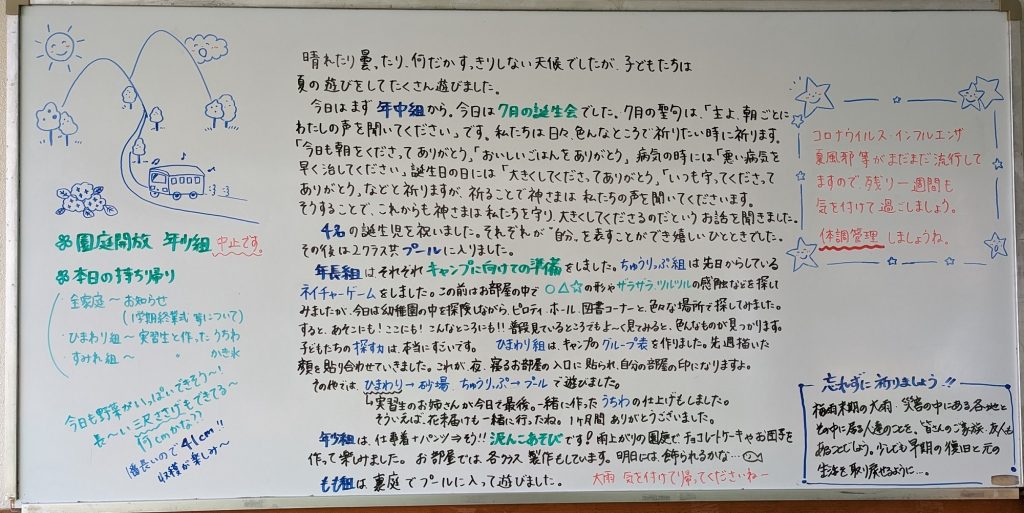 晴れたり曇ったり、何だかすっきりしない天候でしたが、子どもたちは
夏の遊びをしてたくさん遊びました。
今日はまず年中組から。今日は7月の誕生会でした。7月の聖句は、「主よ、朝ごとに
わたしの声を聞いてください」です。私たちは日々、色んなところで祈りたい時に祈ります。
「今日も朝をくださってありがとう」「おいしいごはんをありがとう」病気の時には「悪い病気を
早く治してください」誕生日の日には「大きくしてくださってありがとう」「いつも守ってくださって
ありがとう」などと祈りますが、祈ることで神さまは私たちの声を聞いてくださいます。
そうすることで、これからも神さまは私たちを守り、大きくしてくださるのだというお話を聞きました。
4名の誕生児を祝いました。それぞれが"自分"を表すことができ嬉しいひとときでした。
その後は2クラス共プールに入りました。
年長組はそれぞれキャンプに向けての準備をしました。ちゅうりっぷ組は先日からしている
ネイチャーゲームをしました。この前はお部屋の中で○△☆の形やザラザラ、ツルツルの感触などを探し
みましたが、今日は幼稚園の中を探険しながら、ピロティ、ホール、図書コーナーと、色々な場所で探してみました。
すると、あそこにも!ここにも!こんなところにも!!普段見ているところでもよーく見てみると、色んなものが見つかります。
子どもたちの探す力は、本当にすごいです。 ひまわり組は、キャンプのグループ表を作りました。先週描いた
顔を貼り合わせていきました。これが、夜、寝るお部屋の入口に貼られ、自分の部屋の印になりますよ。
その他では、ひまわり→砂場、ちゅうりっぷ→プールで遊びました。
↳実習生のお姉さんが今日で最後。一緒に作ったうちわの仕上げもしました。
そういえば、花束届けも一緒に行ったね。1ヶ月間ありがとうございました。
年少組は、仕事着+パンツ⇒もう!!泥んこあそびです?雨上がりの園庭でチョコレートケーキやお団子を
作って楽しみました。お部屋では、各クラス製作もしています。明日には、飾られるかな…
もも組は裏庭でプールに入って遊びました。
大雨気を付けて帰ってくださいねー
園庭開放 年少組 中止です。
本日の持ち帰り
全家庭～お知らせ
(1学期終業式等について)
ひまわり組～実習生と作ったうちわ
すみれ組～ 〃 かき氷
今日も野菜がいっぱいできそう～!
長～い三尺ささげもできてる～
何cmかな??
1番長いので41cm!!
収穫が楽しみ～
コロナウイルス・インフルエンザ
夏風邪等がまだまだ流行して
ますので、残り一週間も
気を付けて過ごしましょう。
体調管理しましょうね。
忘れずに祈りましょう!!
梅雨末期の大雨、災害の中にある各地と
その中に居る人達のことを。皆さんのご家族、友人も
あることでしょう。少しでも早期の復旧と元の
生活を取り戻せるように…。